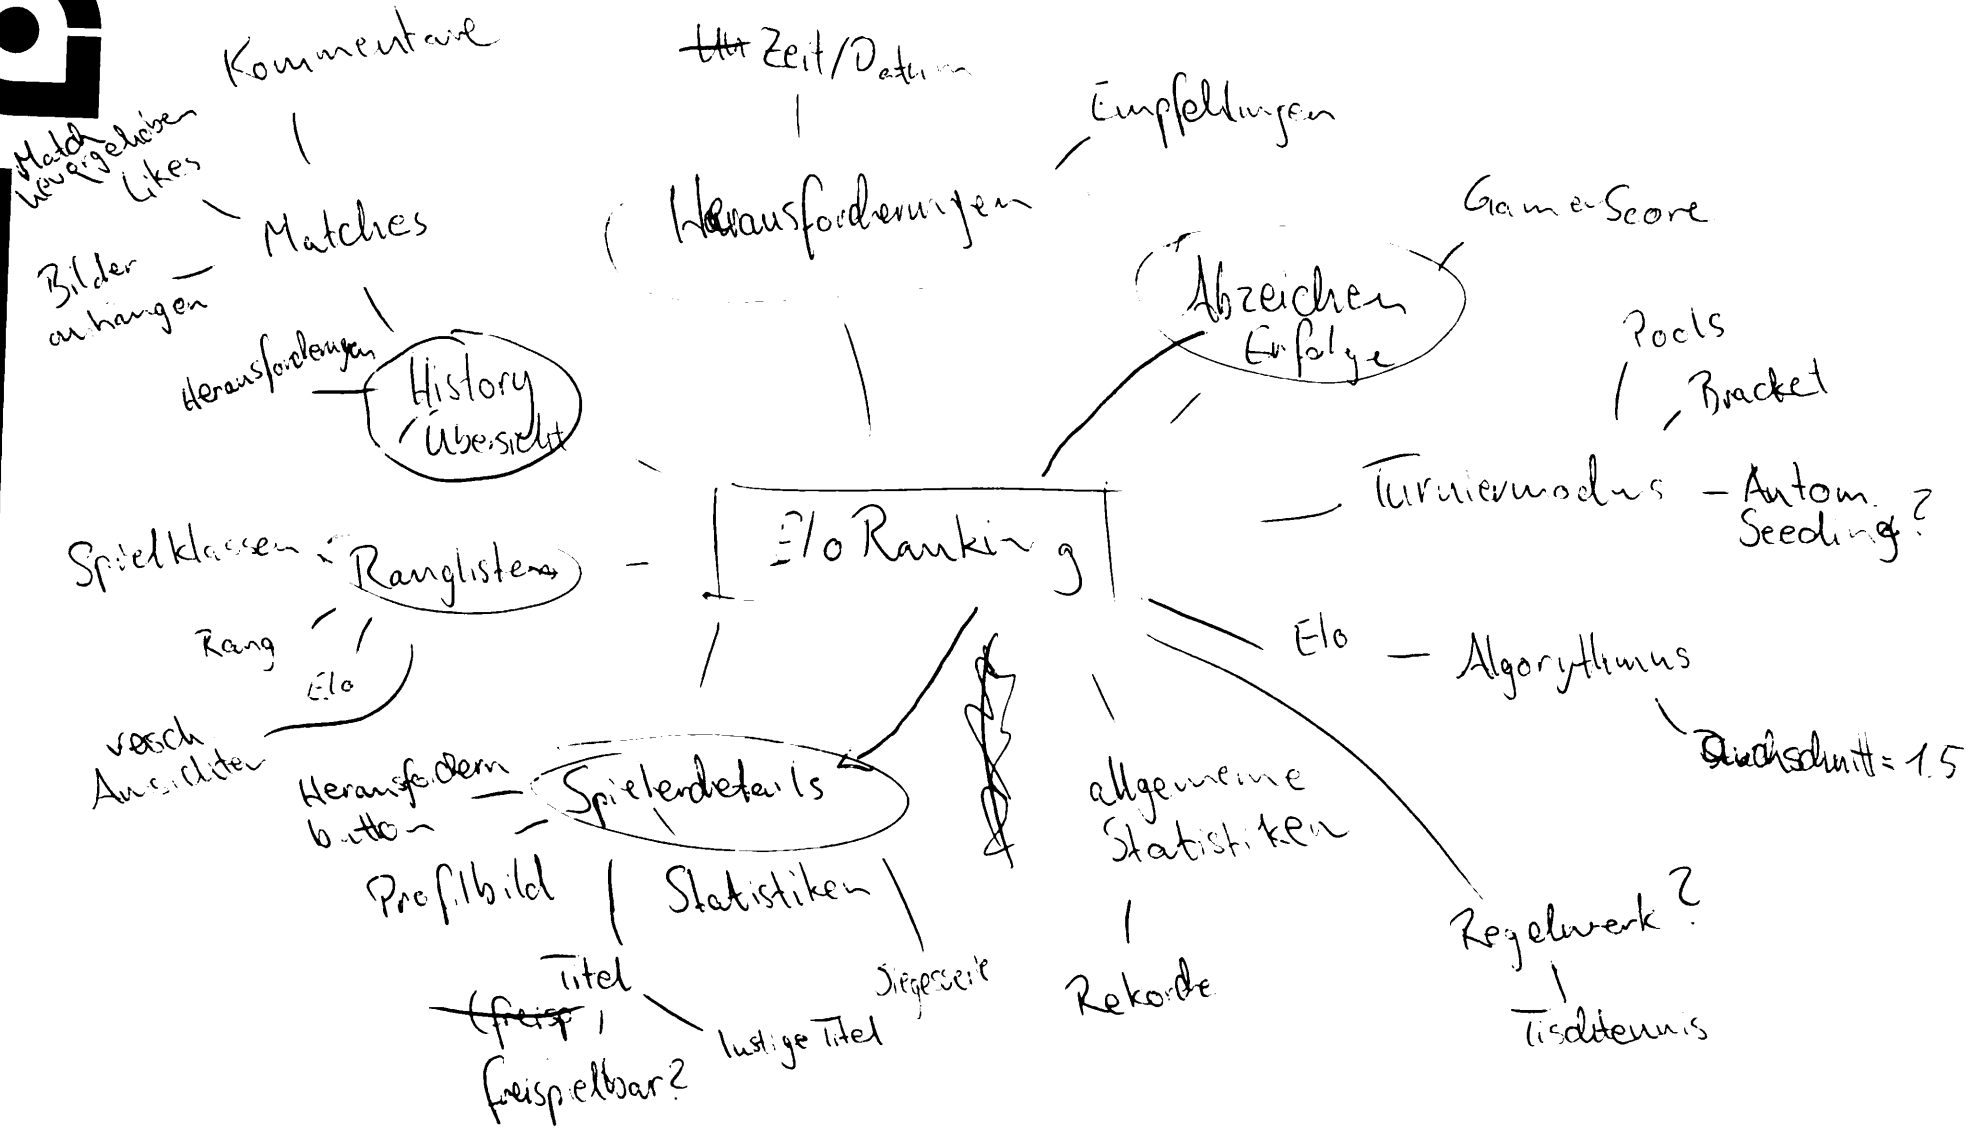 Kommentare
Zeit/Datum
Empfehlungen
Match
hervorgehoben
Likes
Matches
Herausforderungen
GamerScore
Bilder
anhängen
Abzeichen
Erfolge
Pools
Bracket
Herausforderungen
History
Übersicht
Turniermodus - Autom.
Seeding?
Elo Ranking
Spielklassen
Ranglisten
Rang
Elo
Elo - Algorythmus
versch.
Ansichten
Durchschnitt = 1.5
Herausfordern
button
Spielerdetails
allgemeine
Statistiken
Profilbild
Statistiken
Regelwerk?
Titel
Siegesserie
Rekorde
(freisp)
lustige Titel
Tischtennis
freispielbar?